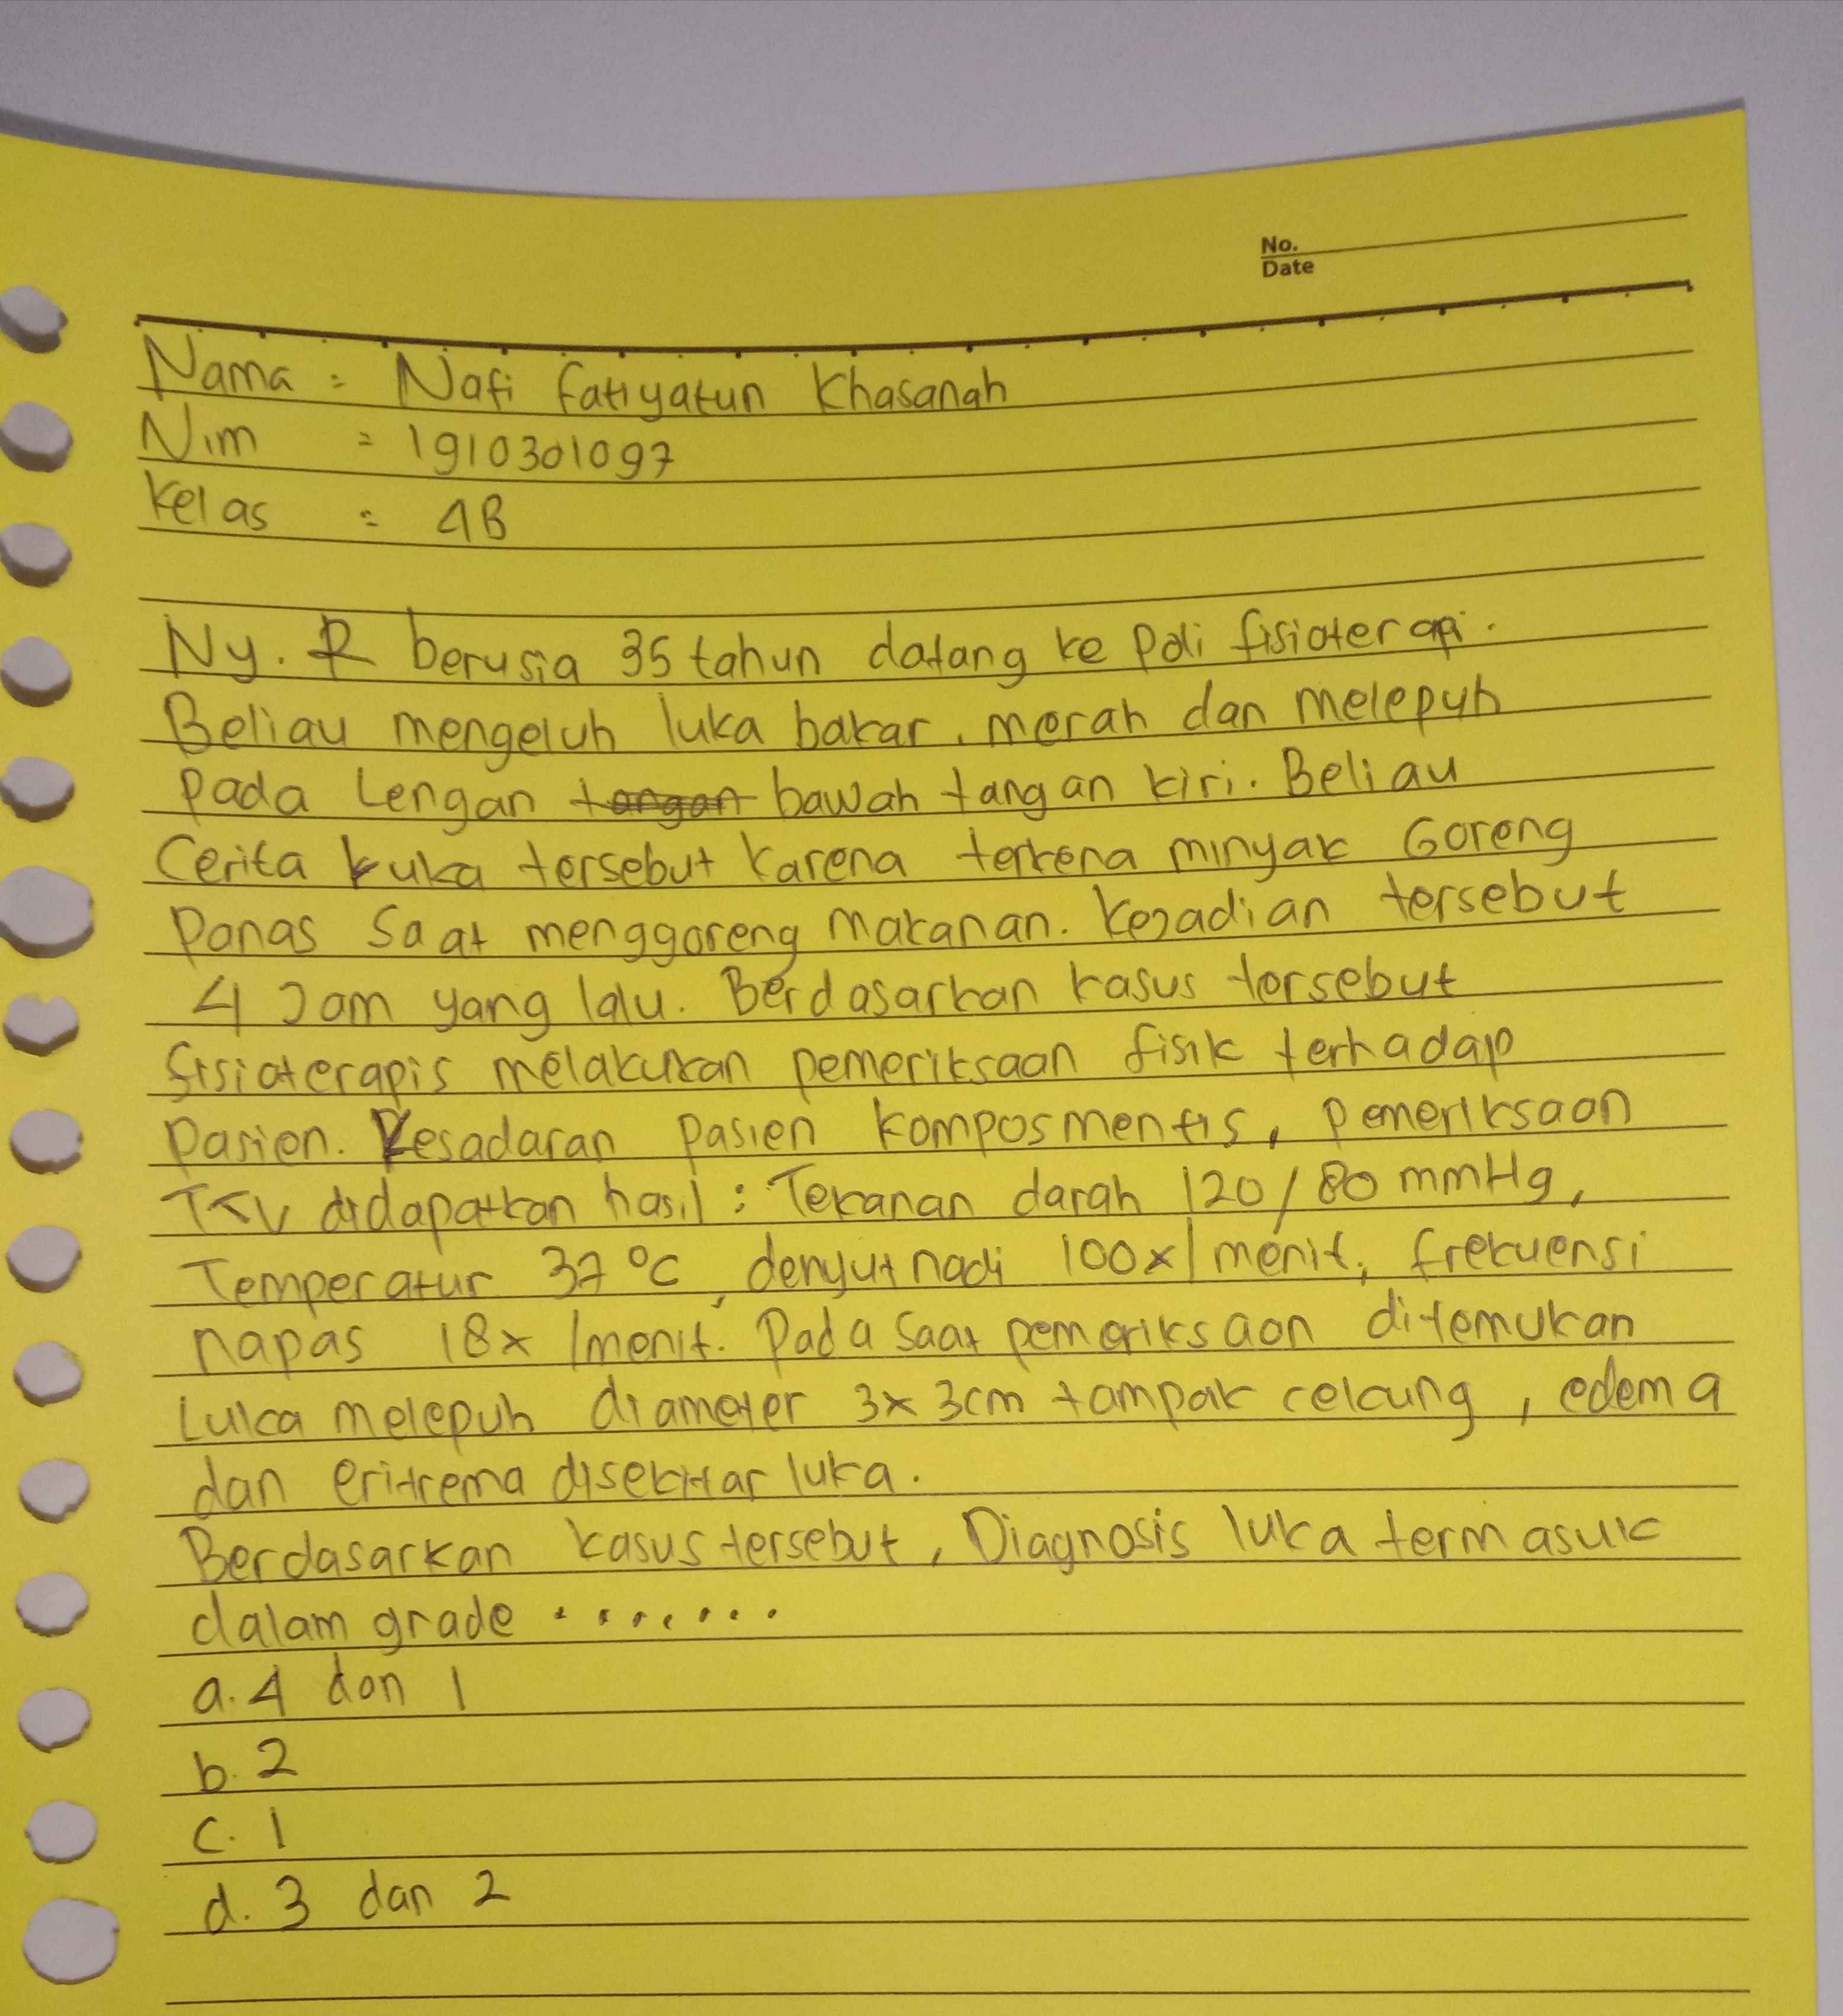 No.
Date
Nama = Nafi fatiyatun Khasanah
Nim = 1910301097
Kelas = 4B
Ny. R berusia 35 tahun datang ke Poli fisioterapi.
Beliau mengeluh luka bakar, merah dan melepuh
pada Lengan tangan bawah tangan kiri. Beliau
Cerita luka tersebut karena terkena minyak Goreng
Panas Saat menggoreng makanan. Kejadian tersebut
4 Jam yang lalu. Berdasarkan kasus tersebut
fisioterapis melakukan pemeriksaan fisik terhadap
Pasien. Kesadaran pasien komposmentis, pemeriksaan
TTV didapatkan hasil : Tekanan darah 120/80 mmHg,
Temperatur 37 °C, denyut nadi 100x/menit, frekuensi
napas 18x /menit. Pada Saat pemeriksaan ditemukan
Luka melepuh diameter 3x3cm tampak cekung, edema
dan eritrema disekitar luka.
Berdasarkan kasus tersebut, Diagnosis luka termasuk
dalam grade ........
a. 4 dan 1
b. 2
c. 1
d. 3 dan 2